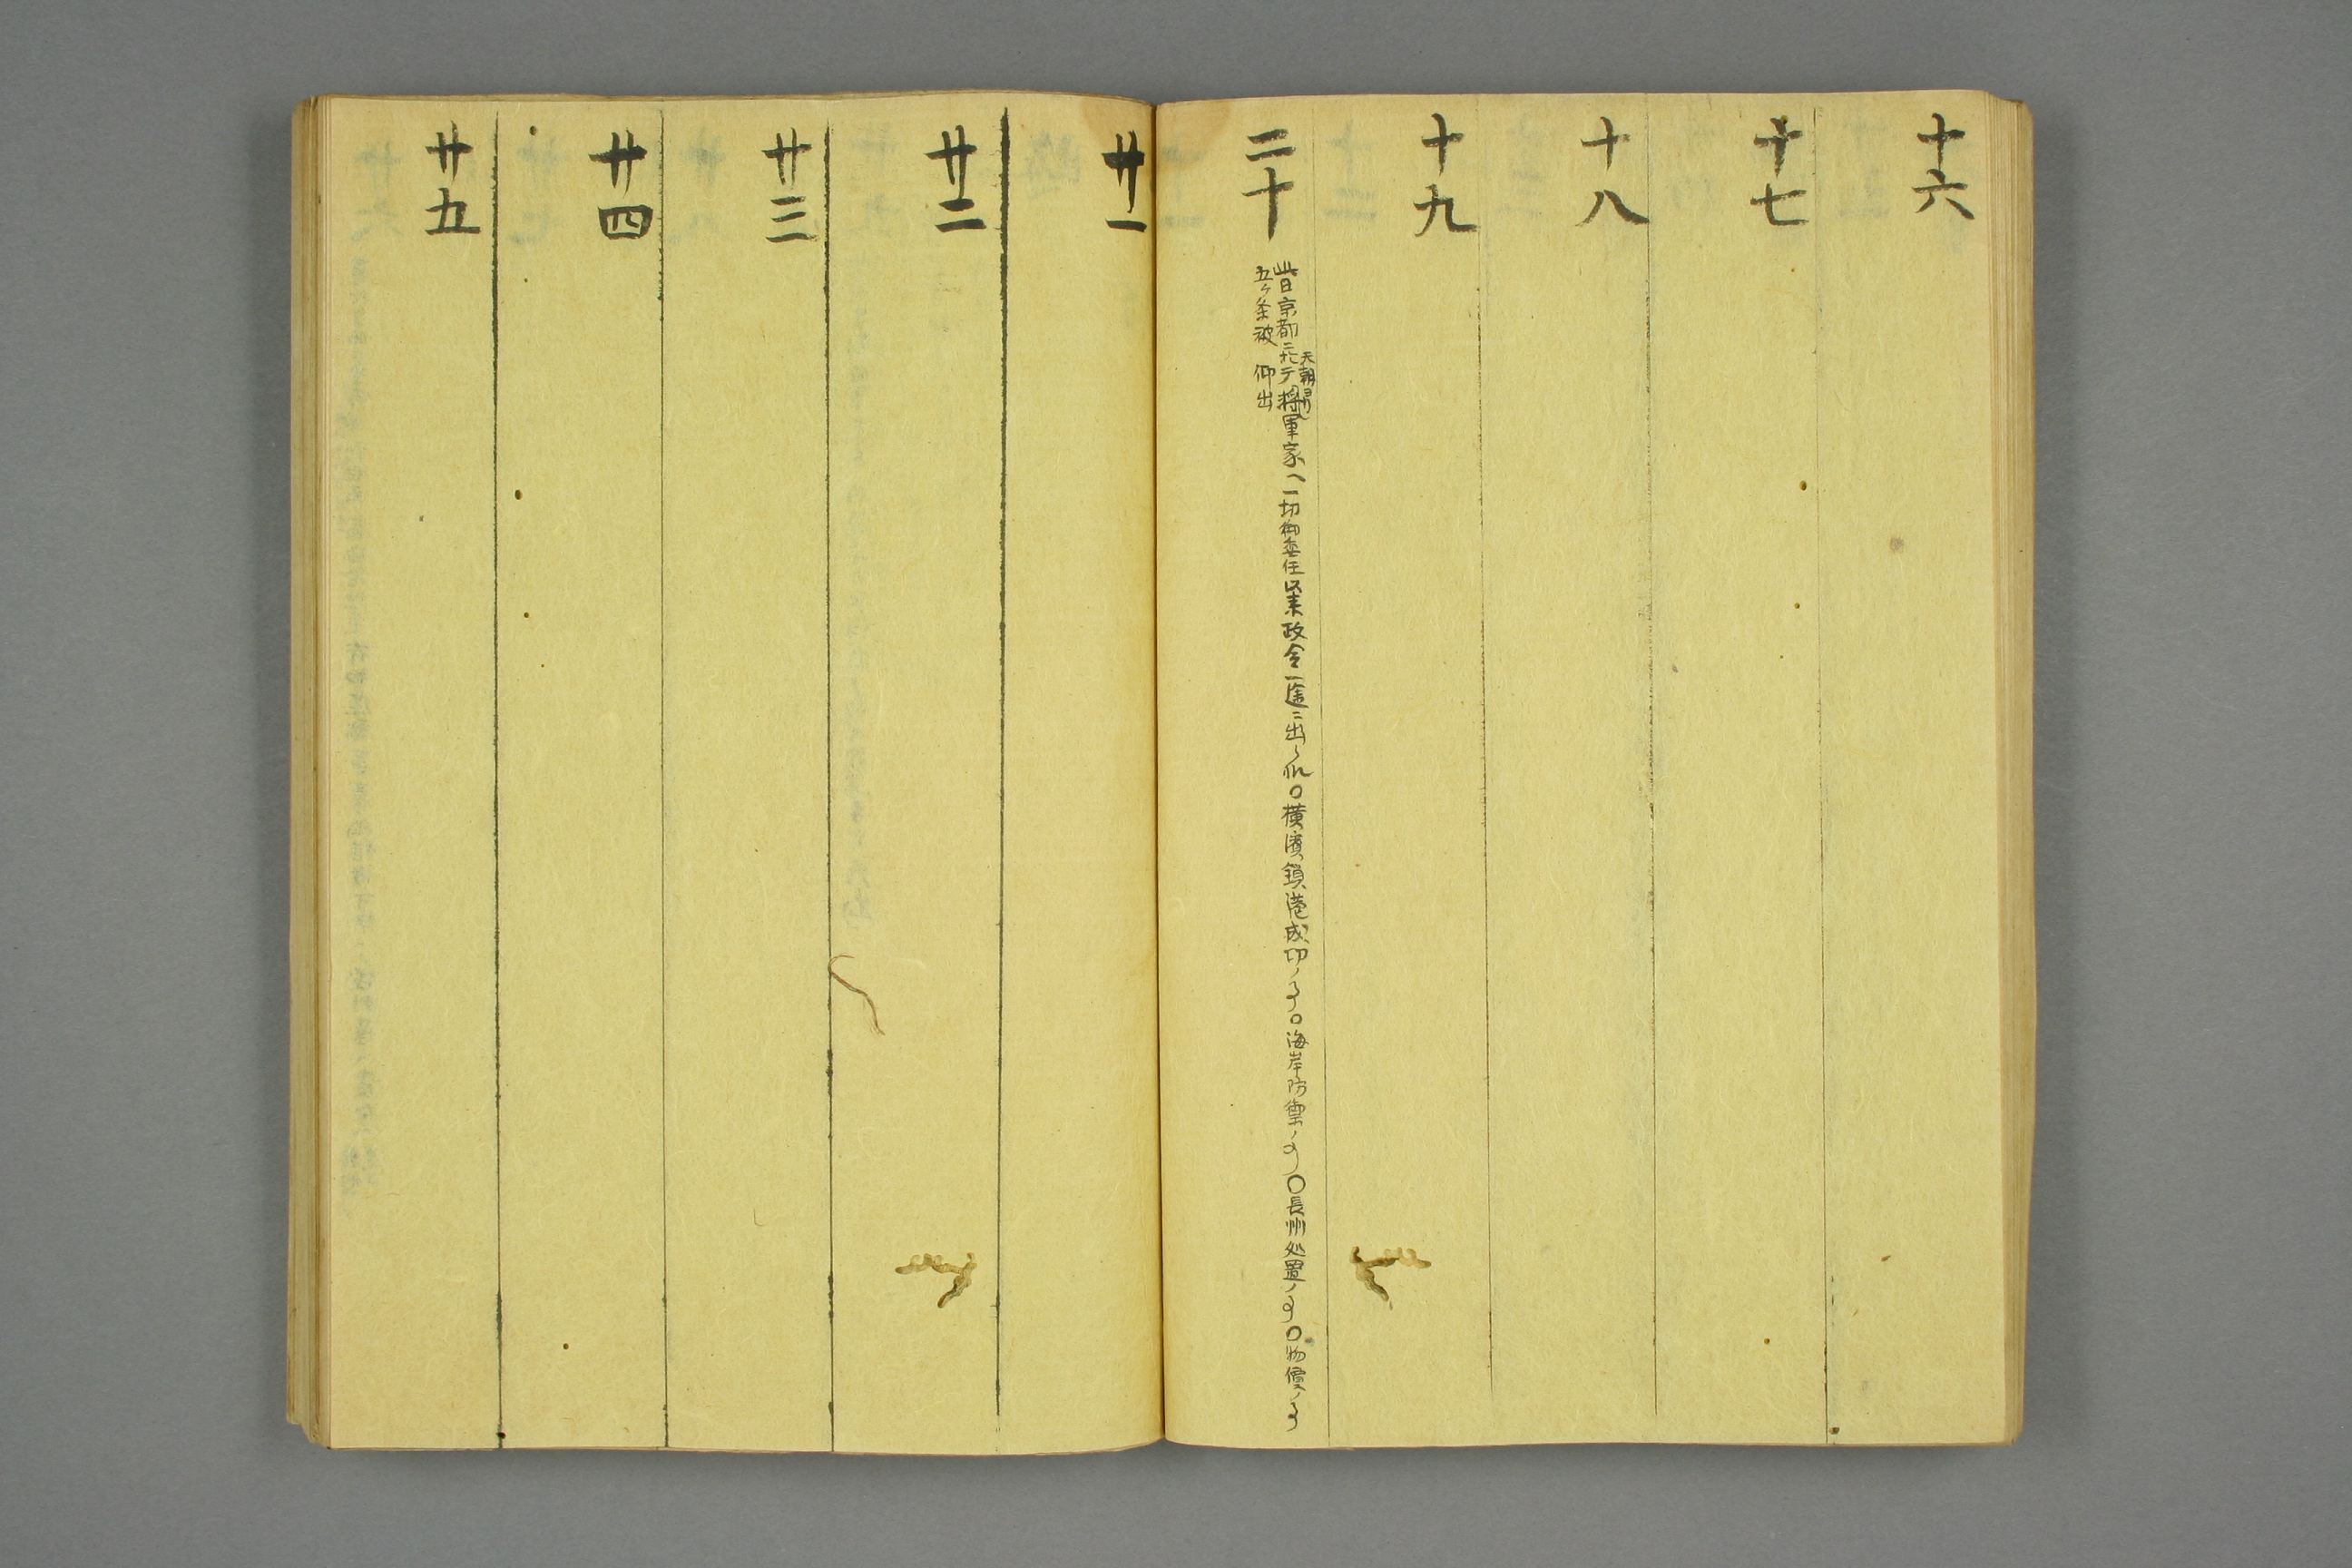 十六
十七
十八
十九
二十
此日京都ニ於テ将軍家へ一切御委任以来政令一途ニ出ル〇横濱鎖港成功ノ事〇海岸防禦ノ事〇長州処置ノ事〇物價ノ事
天朝ヨリ
五ケ条被 仰出
廿一
廿二
廿三
廿四
廿五